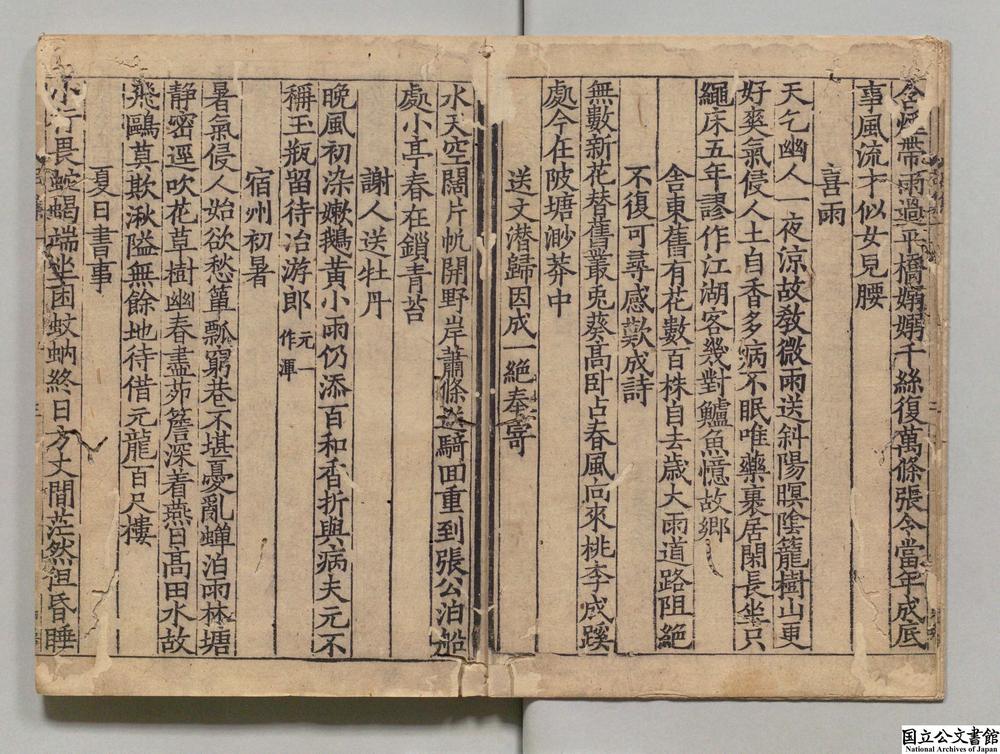 含煙帶雨過平橋嫋嫋千絲復萬條張令當年成底
事風流才似女兒腰
喜雨
天乞幽人一夜涼故教微雨送斜陽暝陰籠樹山更
好爽氣侵人土自香多病不眠唯藥裹居閑長坐只
繩床五年謬作江湖客幾對鱸魚憶故鄉
舍東舊有花數百株自去歲大雨道路阻絕
不復可尋感歎成詩
無數新花替舊叢兎葵高臥占春風向來桃李成蹊
處今在陂塘渺莽中
送文潜歸因成一絕奉寄
水天空闊片帆開野岸蕭條送騎回重到張公泊船
處小亭春在鎖青苔
謝人送牡丹
晚風初染嫩鵝黃小雨仍添百和香折與病夫元不
稱玉瓶留待冶游郎 元一作渾
宿州初暑
暑氣侵人始欲愁簞瓢窮巷不堪憂亂蟬泊雨林塘
静密逕吹花草樹幽春盡茆簷深着燕日高田水故
飛鷗莫欺湫隘無餘地待借元龍百尺樓
夏日書事
小行畏蛇蝎端坐困蚊蚋終日方丈間茫然但昏睡
国立公文書館
National Archives of Japan